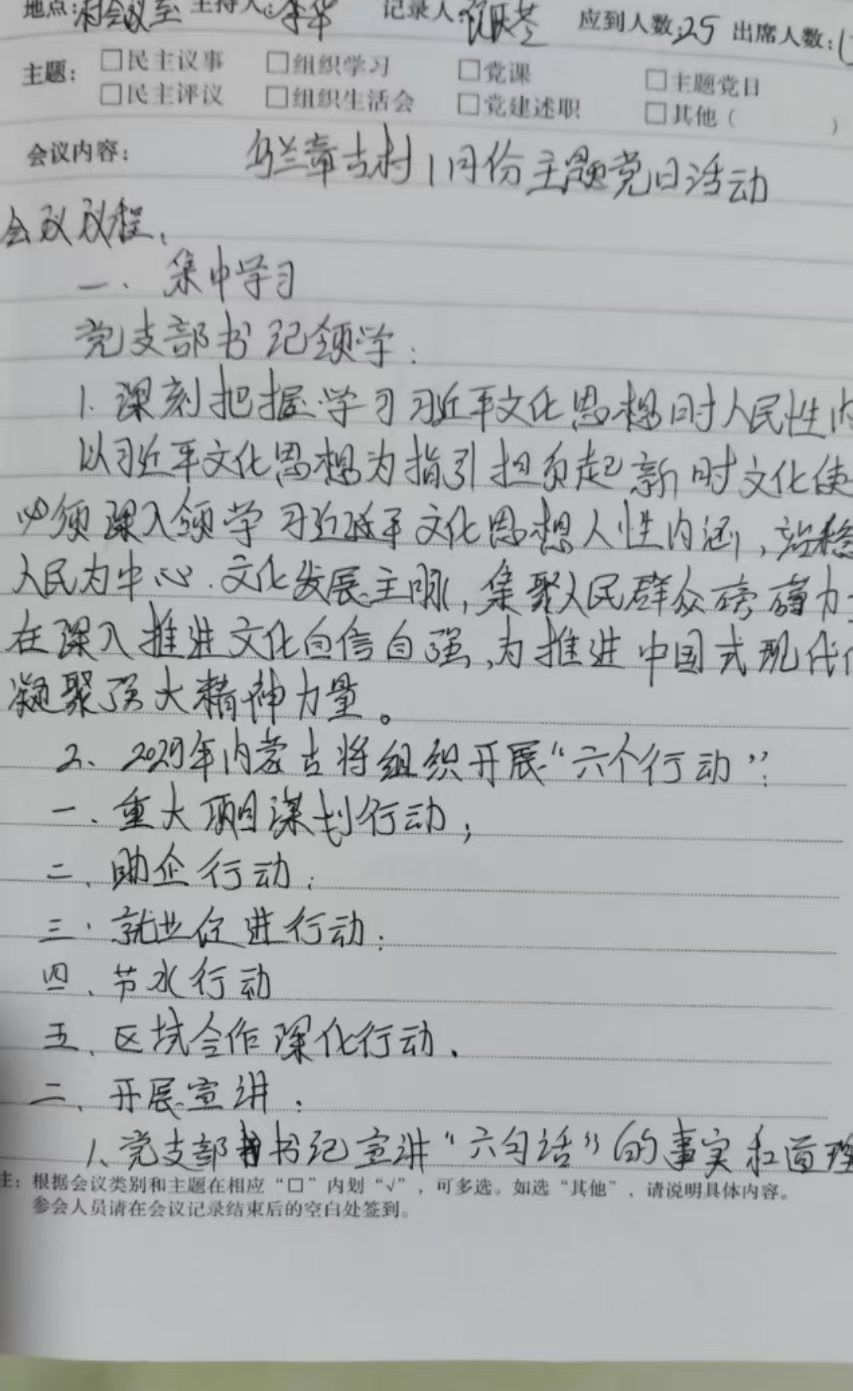 地点:村会议室 主持人:李华 记录人: 应到人数:25 出席人数:
主题: □民主议事 □组织学习 □党课 □主题党日
□民主评议 □组织生活会 □党建述职 □其他( )
会议内容: 乌兰章古村1月份主题党日活动
会议议程:
一、集中学习
党支部书记领学:
1.深刻把握学习习近平文化思想时人民性内
以习近平文化思想为指引担负起新时文化使
必须深入领学习近平文化思想人性内涵,站稳
人民为中心.文化发展主脉,集聚人民群众磅礴力
在深入推进文化自信自强,为推进中国式现代化
凝聚强大精神力量。
2、年内蒙古将组织开展“六个行动”:
一、重大项目谋划行动;
二、助企行动:
三、就业促进行动:
四、节水行动
五、区域合作深化行动、
二、开展宣讲:
1、党支部书记宣讲“六句话”的事实和道理
注:根据会议类别和主题在相应“□”内划“√”,可多选。如选“其他”,请说明具体内容。
参会人员请在会议记录结束后的空白处签到。